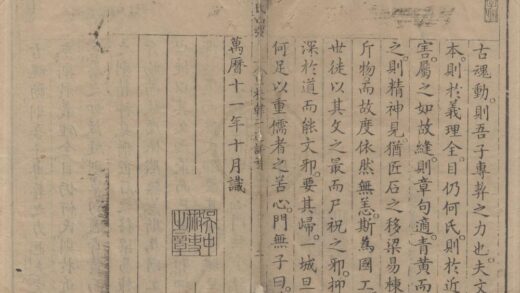 古魂動則吾子專斡之力也夫文
本則於義理全目仍何氏則於近
害屬之如故縫則章句適青黃而
之則精神見猶匠石之移梁易棟
斤物而故度依然無恙斯為國工
世徒以其文之最而尸祝之邪抑
深於道而能文邪要其歸一城旦
何足以重儒者之苦心門無子曰
萬曆十一年十月識